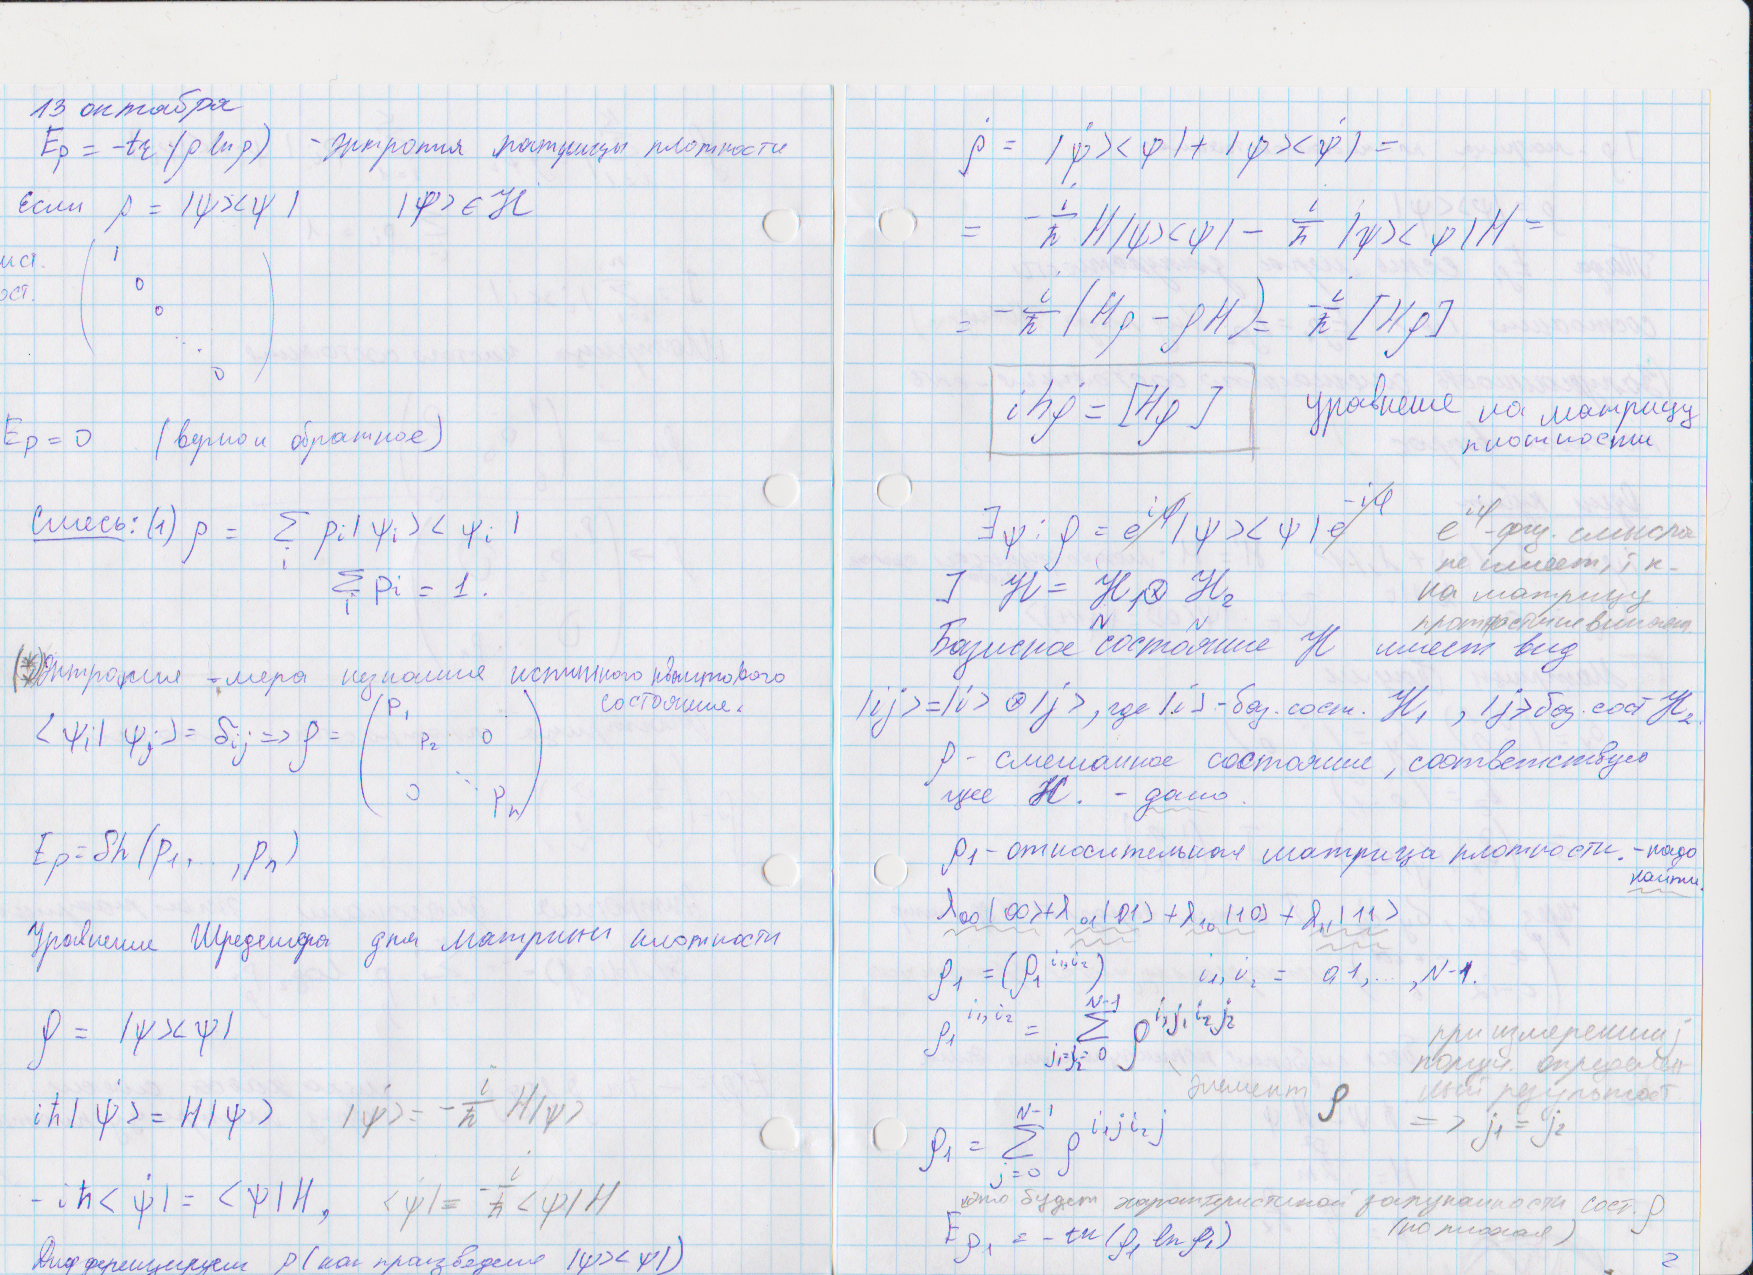 13 октября
Eρ = -tr (ρ ln ρ) - Энтропия матрицы плотности
Если ρ = |ψ><ψ| |ψ> ∈ ℋ
1
0
0
0
Eρ = 0 (верно и обратное)
Смесь: (1) ρ = Σ_i p_i |ψ_i><ψ_i|
Σ_i p_i = 1.
Энтропия - мера незнания истинного квантового
состояния.
<ψ_i|ψ_j> = δ_ij => ρ = (p_1 p_2 0 0 ⋱ p_n)
Eρ = Sh (p_1, ..., p_n)
Уравнение Шредингера для матрицы плотности
ρ = |ψ><ψ|
iħ|ψ̇> = H|ψ> |ψ̇> = -i/ħ H|ψ>
-iħ<ψ̇| = <ψ|H, <ψ̇| = -i/ħ <ψ|H
Дифференцируем ρ (как произведение |ψ><ψ|)
ρ̇ = |ψ̇><ψ| + |ψ><ψ̇| =
= -i/ħ H|ψ><ψ| - i/ħ |ψ><ψ|H =
= -i/ħ (Hρ - ρH) = -i/ħ [Hρ]
iħρ̇ = [Hρ] уравнение на матрицу
плотности
∃ψ: ρ = e^{iφ}|ψ><ψ|e^{-iφ} e^{iφ} - физ. смысла
не имеет, т.к.
на матрицу
плотности не влияет
] ℋ = ℋ_1 ⊗ ℋ_2
N N
Базисное состояние ℋ имеет вид
|ij> = |i> ⊗ |j>, где |i> - баз. сост. ℋ_1, |j> баз. сост ℋ_2.
ρ - смешанное состояние, соответствую
щее ℋ. - дано.
ρ_1 - относительная матрица плотности. - надо
найти.
λ_00|00> + λ_01|01> + λ_10|10> + λ_11|11>
ρ_1 = (ρ_1^{i_1,i_2}) i_1, i_2 = 0,1, ..., N-1.
ρ_1^{i_1,i_2} = Σ_{j_1=j_2=0}^{N-1} ρ^{i_1 j_1 i_2 j_2}
элемент ρ
при измерении j
получ. определен
ный результат
=> j_1 = j_2
ρ_1 = Σ_{j=0}^{N-1} ρ^{i_1 j i_2 j}
это будет характеристикой запутанности сост. ρ
(но плохая)
Eρ_1 = -tr (ρ_1 ln ρ_1)
2